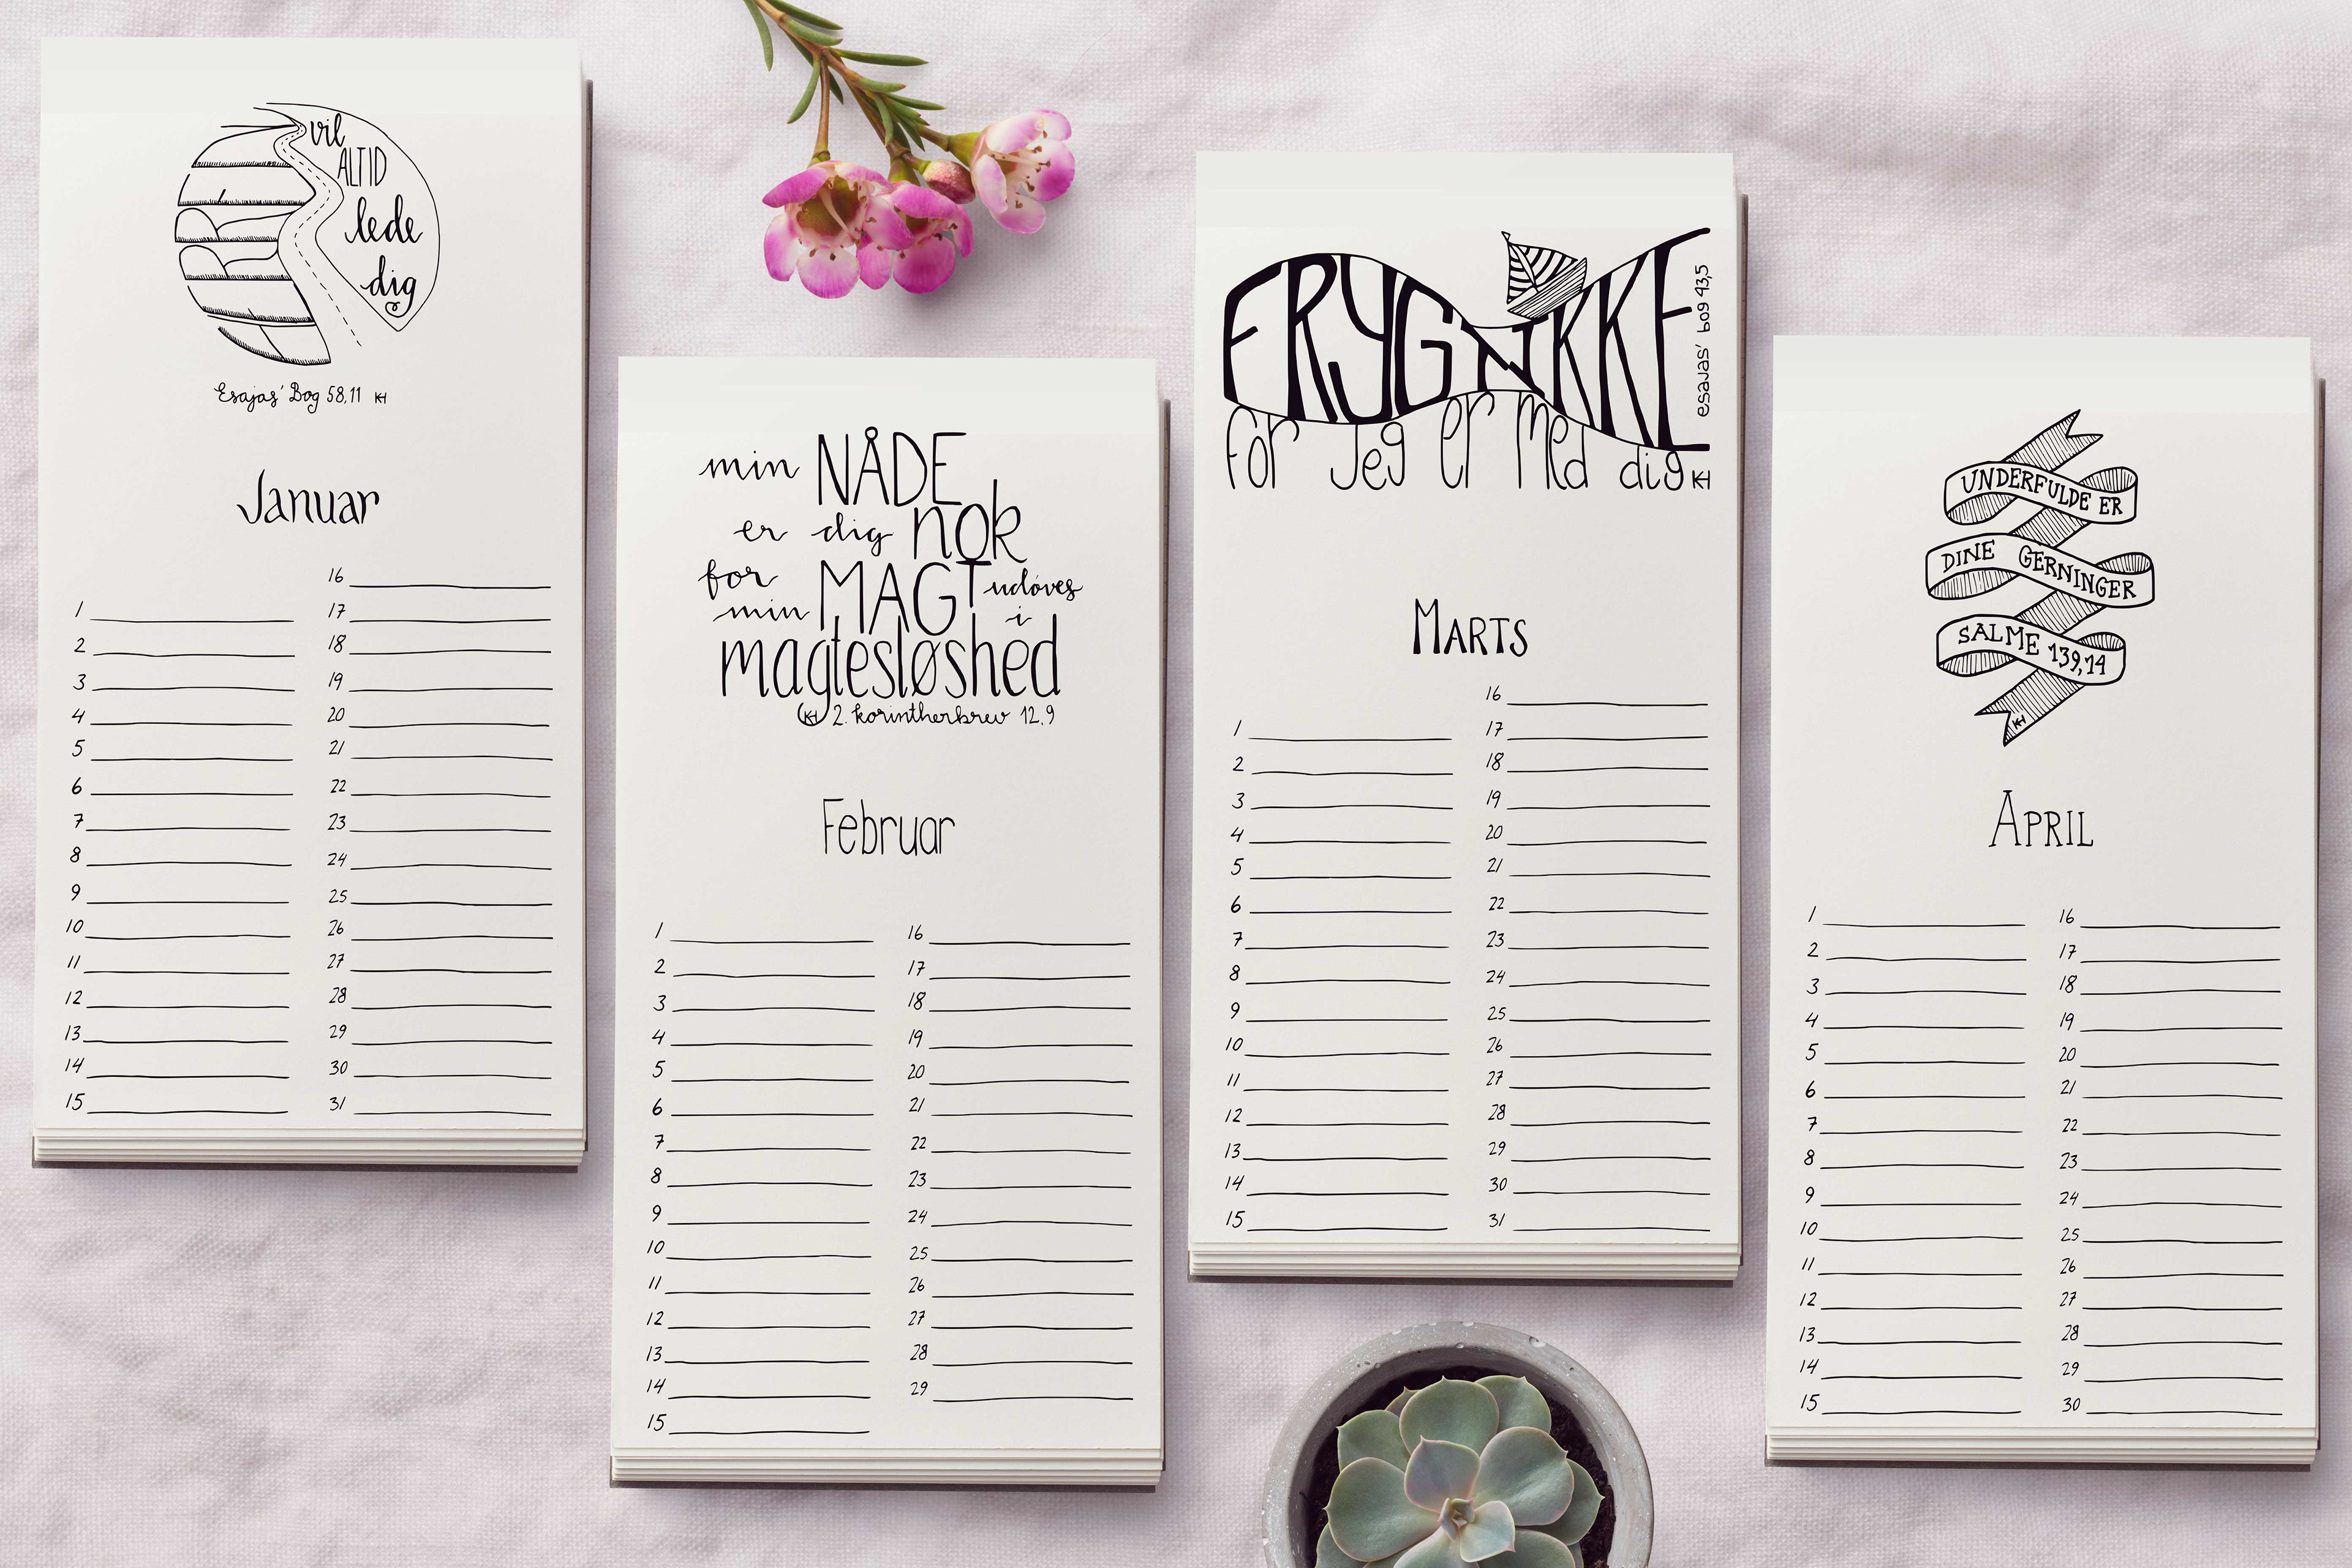 vil
ALTID
lede
dig
Esajas' Bog 58,11 KH
Januar
1
2
3
4
5
6
7
8
9
10
11
12
13
14
15
16
17
18
19
20
21
22
23
24
25
26
27
28
29
30
31
min NÅDE
er dig nok
for MAGT udøves
min i
magtesløshed
KH 2. korintherbrev 12,9
Februar
1
2
3
4
5
6
7
8
9
10
11
12
13
14
15
16
17
18
19
20
21
22
23
24
25
26
27
28
29
FRYGT IKKE
esajas' bog 43,5
for jeg er med dig KH
MARTS
1
2
3
4
5
6
7
8
9
10
11
12
13
14
15
16
17
18
19
20
21
22
23
24
25
26
27
28
29
30
31
UNDERFULDE ER
DINE GERNINGER
SALME 139,14
KH
APRIL
1
2
3
4
5
6
7
8
9
10
11
12
13
14
15
16
17
18
19
20
21
22
23
24
25
26
27
28
29
30